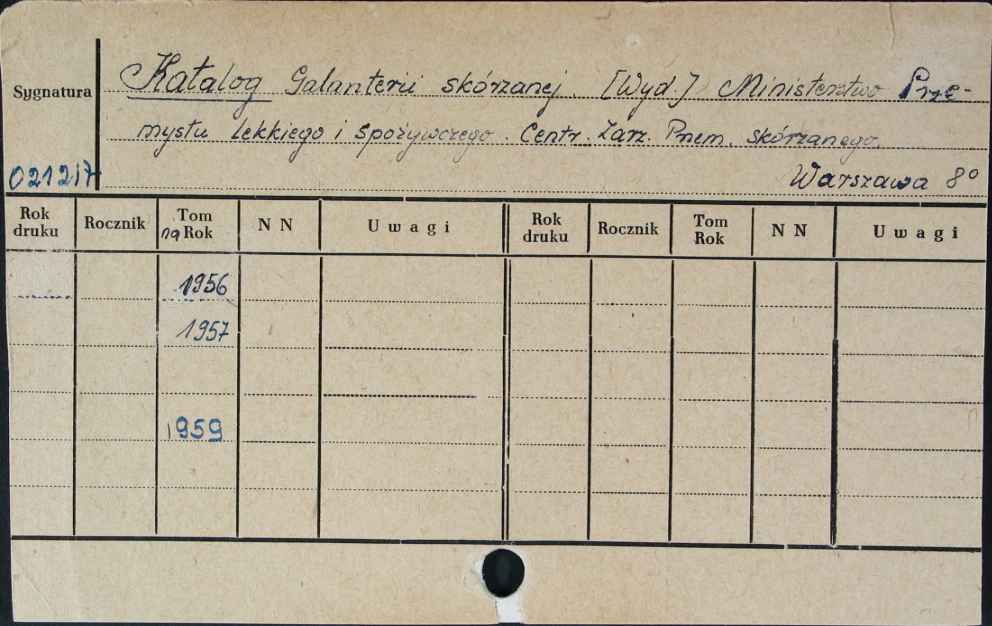 Sygnatura
Katalog Galanterii skórzanej. [Wyd.] Ministerstwo Prze-
mysłu Lekkiego i Spożywczego. Centr. Zarz. Przem. skórzanego.
021217 Warszawa 8°
Rok druku Rocznik Tom na Rok N N Uwagi Rok druku Rocznik Tom Rok N N Uwagi
1956
1957
1959